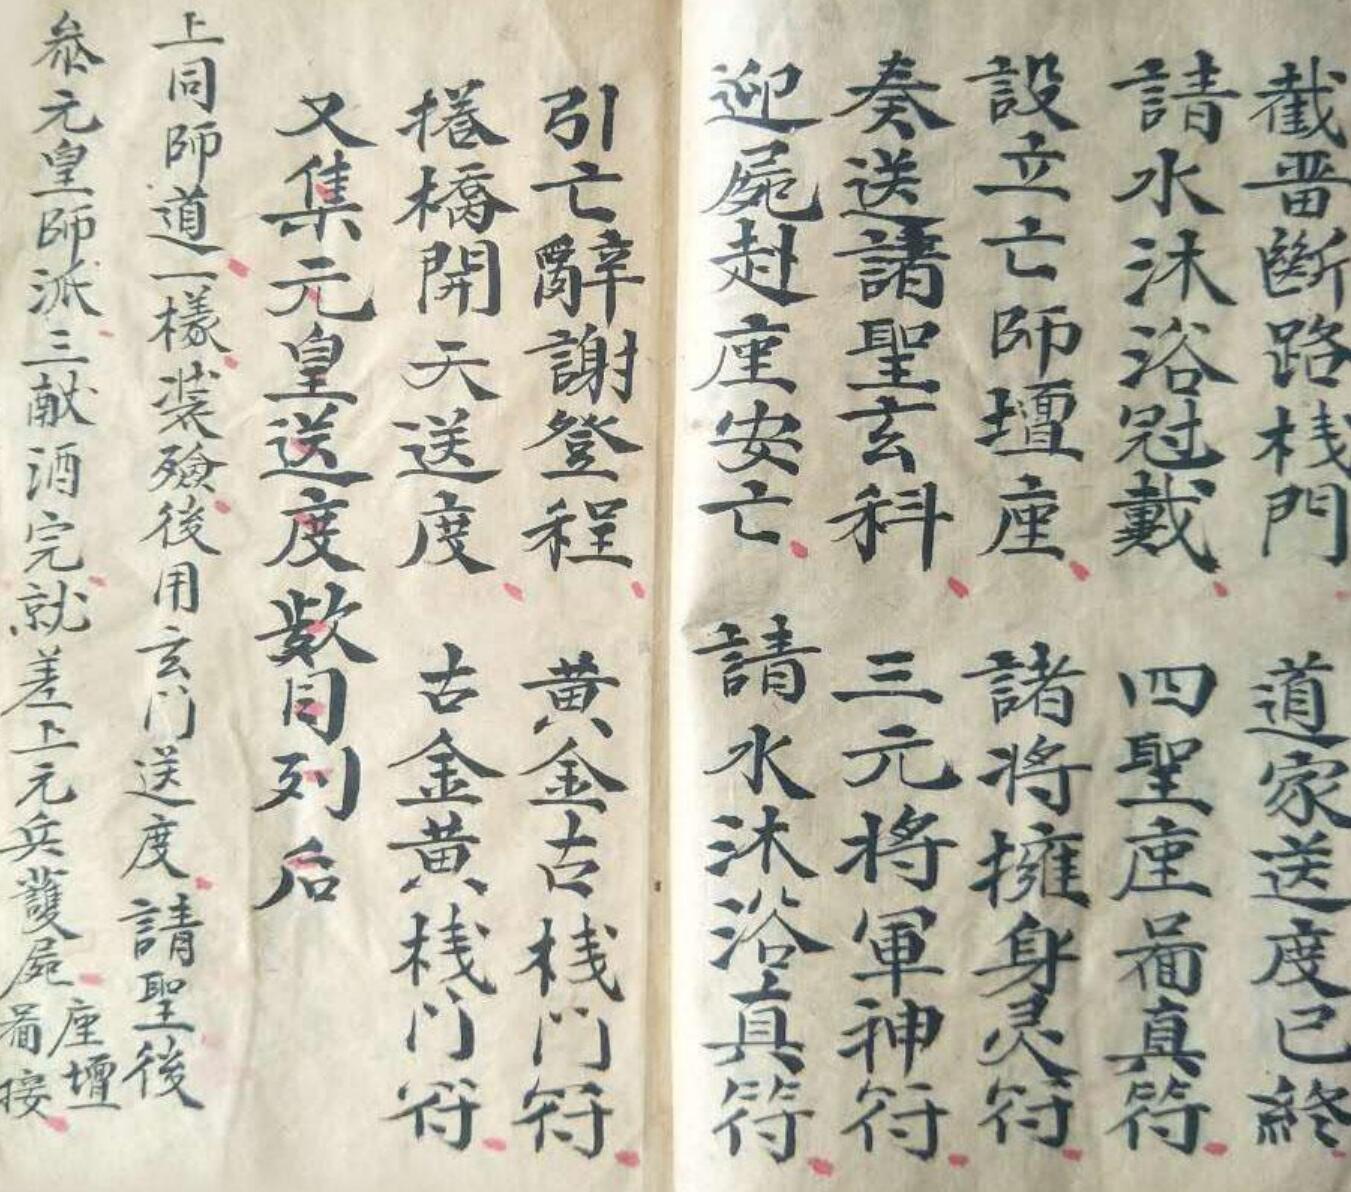 截畨斷路栈門 道家送度已終
請水沐浴冠戴 四聖座啚真符
設立亡師壇座 諸將擁身灵符
奏送諸聖玄科 三元将軍神符
迎屍赴座安亡 請水沐浴真符
引亡辭謝登程 黄金古栈门符
捲橋開天送度 古金黄栈门符
又集元皇送度欵目列后
上同師道一様装殮後用玄门送度請聖後
叅元皇師派三献酒完就差上元兵護屍座壇啚接